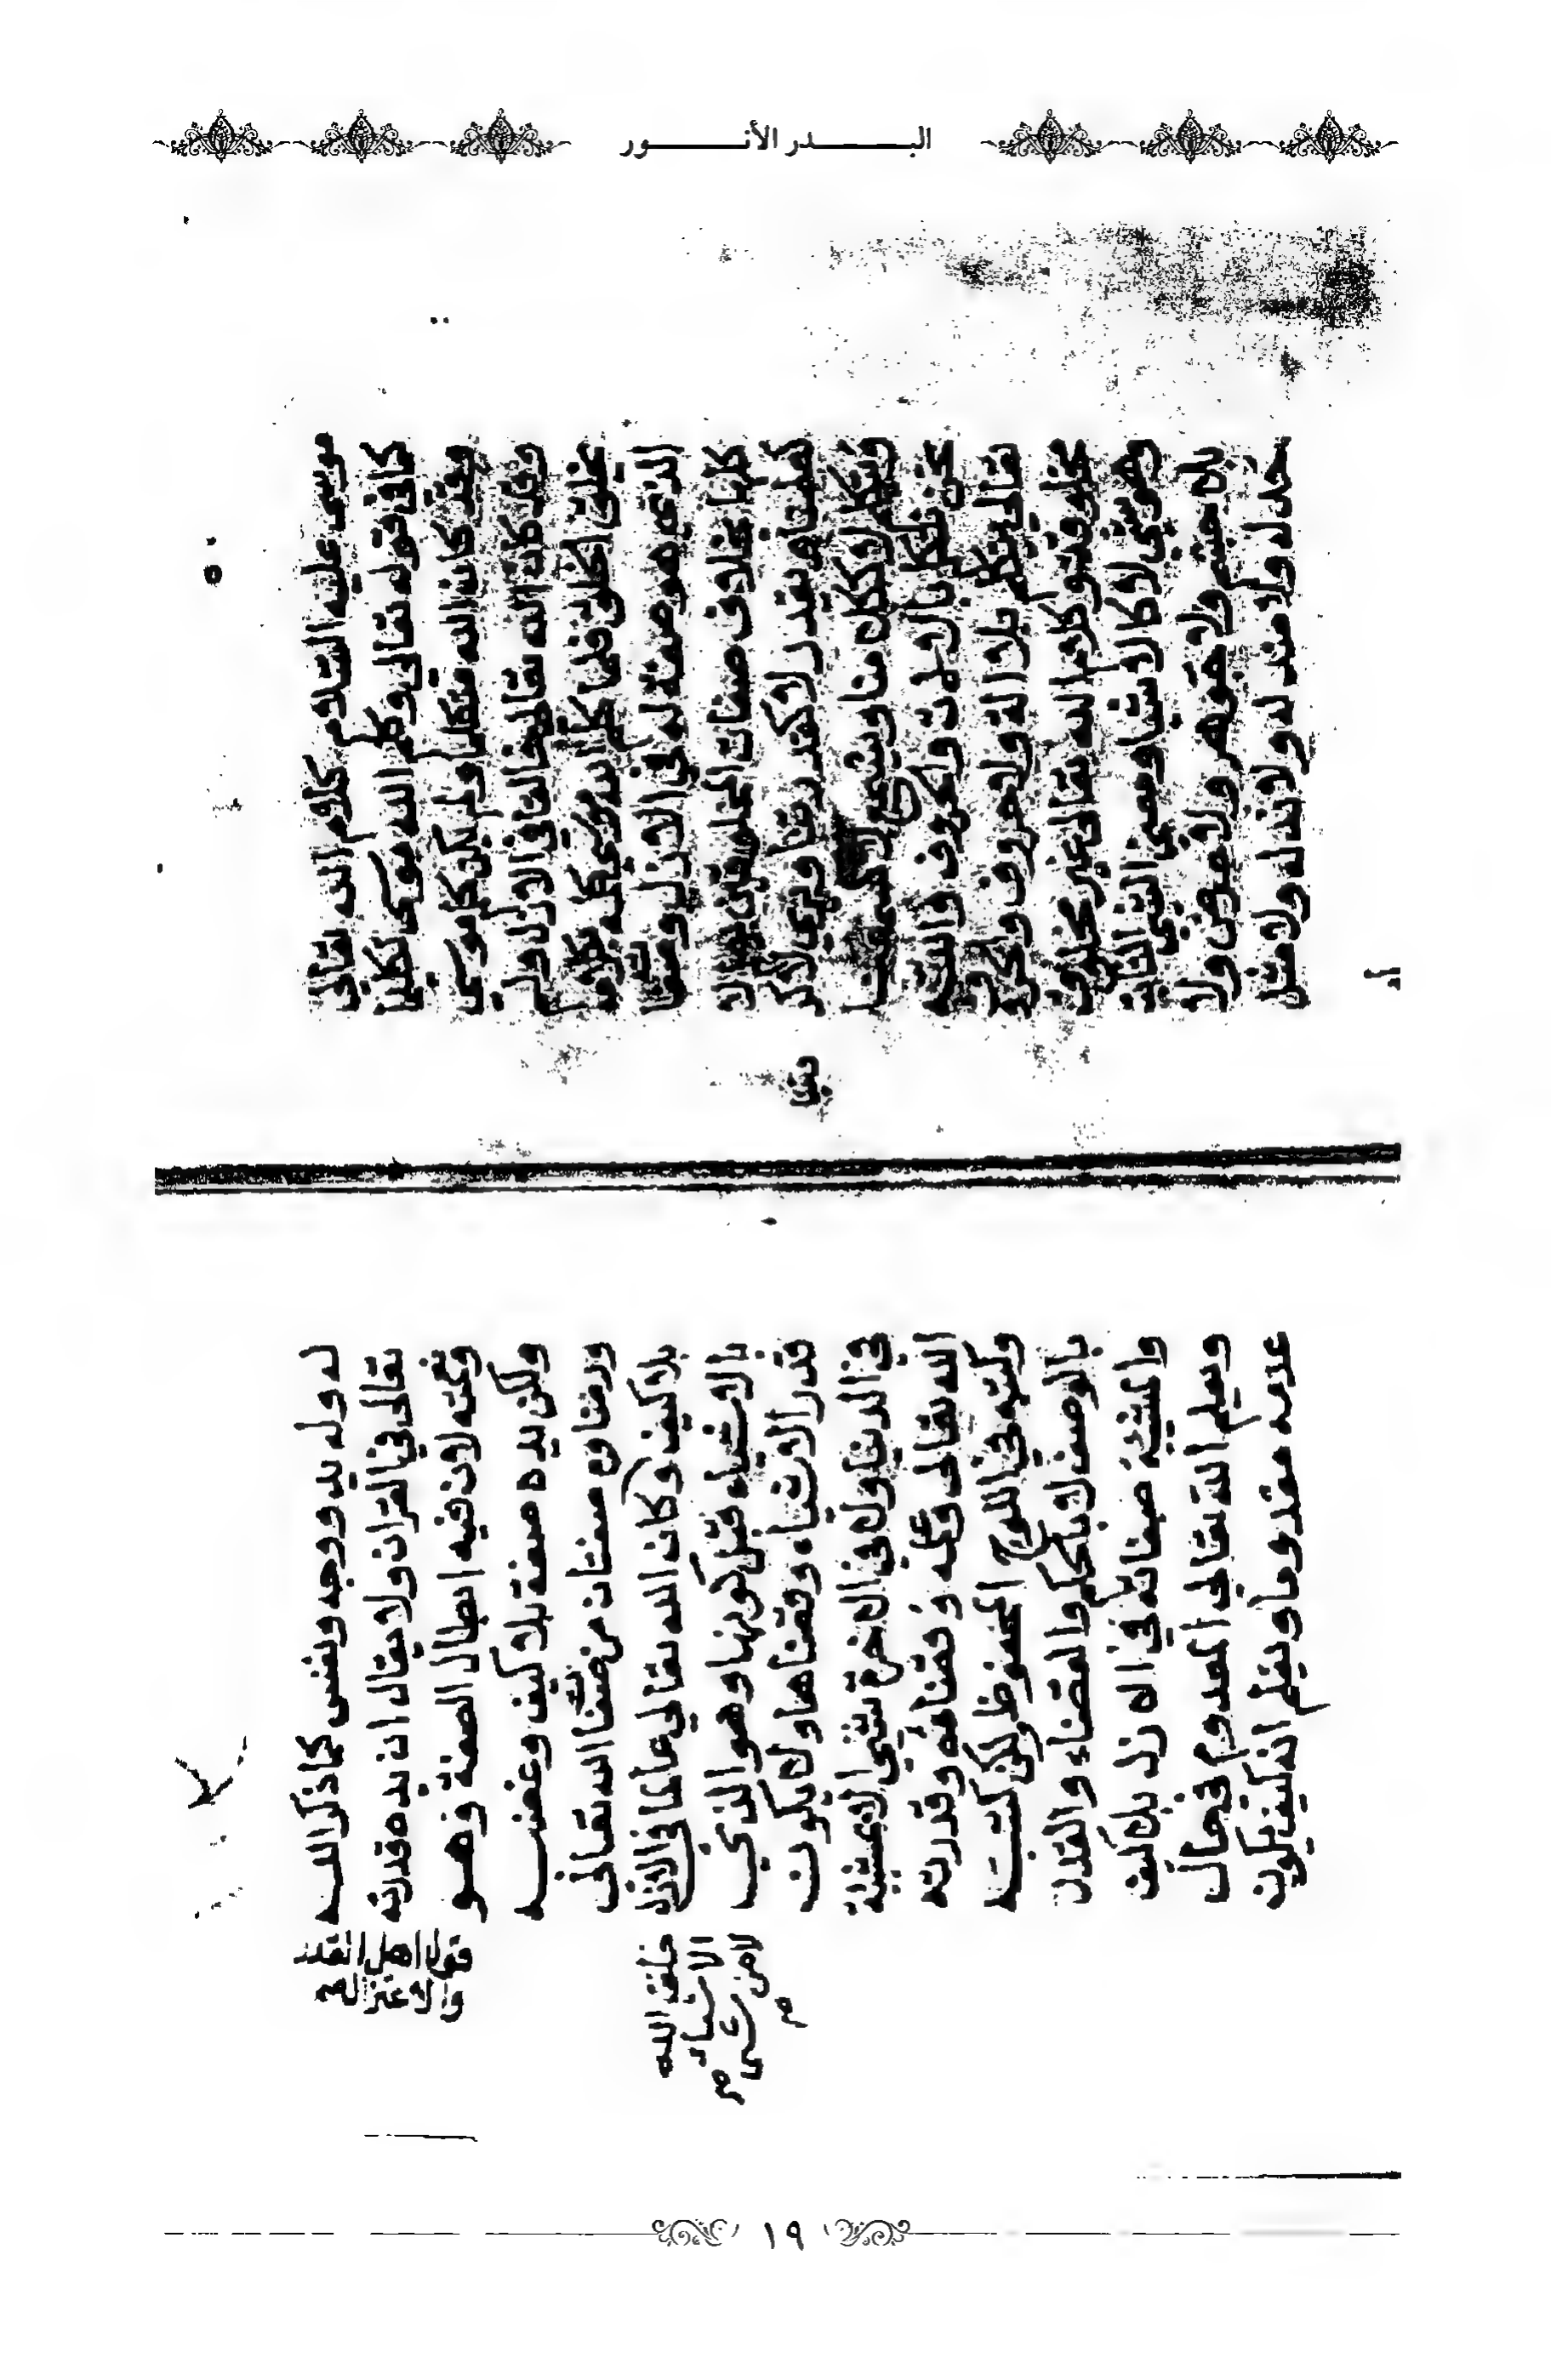 البـــــــدر الأنـــــــور
موسى عليه السلام كلام الله تعالى
كما فى قوله تعالى وكلم الله موسى تكليما
وقد كان الله متكلما ولم يكن كلم موسى
وقد كان الله تعالى خالقا فى الازل ولم
يخلق الخلق فلما كلم الله موسى كلمه بكلامه
الذي هو صفة له فى الازل وصفاته
كلها بخلاف صفات المخلوقين يعلم لا
كعلمنا ويقدر لا كقدرتنا ويرى لا كرؤ
يتنا
ويتكلم لا ككلامنا ويسمع لا كسمعنا
نحن نتكلم بالالات والحروف والله
تعالى يتكلم بلا الة ولا حروف
مخلوقة وكلام الله تعالى غير مخلوق
وهو شئ لا كالاشيا ومعنى الشئ اثباته
بلا جسم ولا جوهر ولا عرض ولا
حد له ولا ضد له ولا ند له ولا مثل
له وله يد ووجه ونفس كما ذكر الله
تعالى في القران ولا يقال ان يده قدرته
ونعمته لان فيه ابطال الصفة وهو
قول اهل القدر
والاعتزال
ولكن يده صفة بلا كيف وغضبه
ورضاؤه صفتان من صفات الله تعالى
بلا كيف وكان الله تعالى عالما فى الازل
خلق الله
الاشياء
لا من شى
بالاشياء قبل كونها وهو الذي
قدر الاشياء وقضاها ولا يكون
فى الدنيا ولا فى الاخرة شئ الا بمشيئة
الله تعالى وعلمه وقضائه وقدرته
وكتبه فى اللوح المحفوظ لكن كتبه
بالوصف لا بالحكم والقضاء والقدر
والمشيئة صفاته فى الازل بلا كيف
ويعلم الله تعالى المعدوم فى حال
عدمه معدوما ويعلم انه كيف يكون
١٩